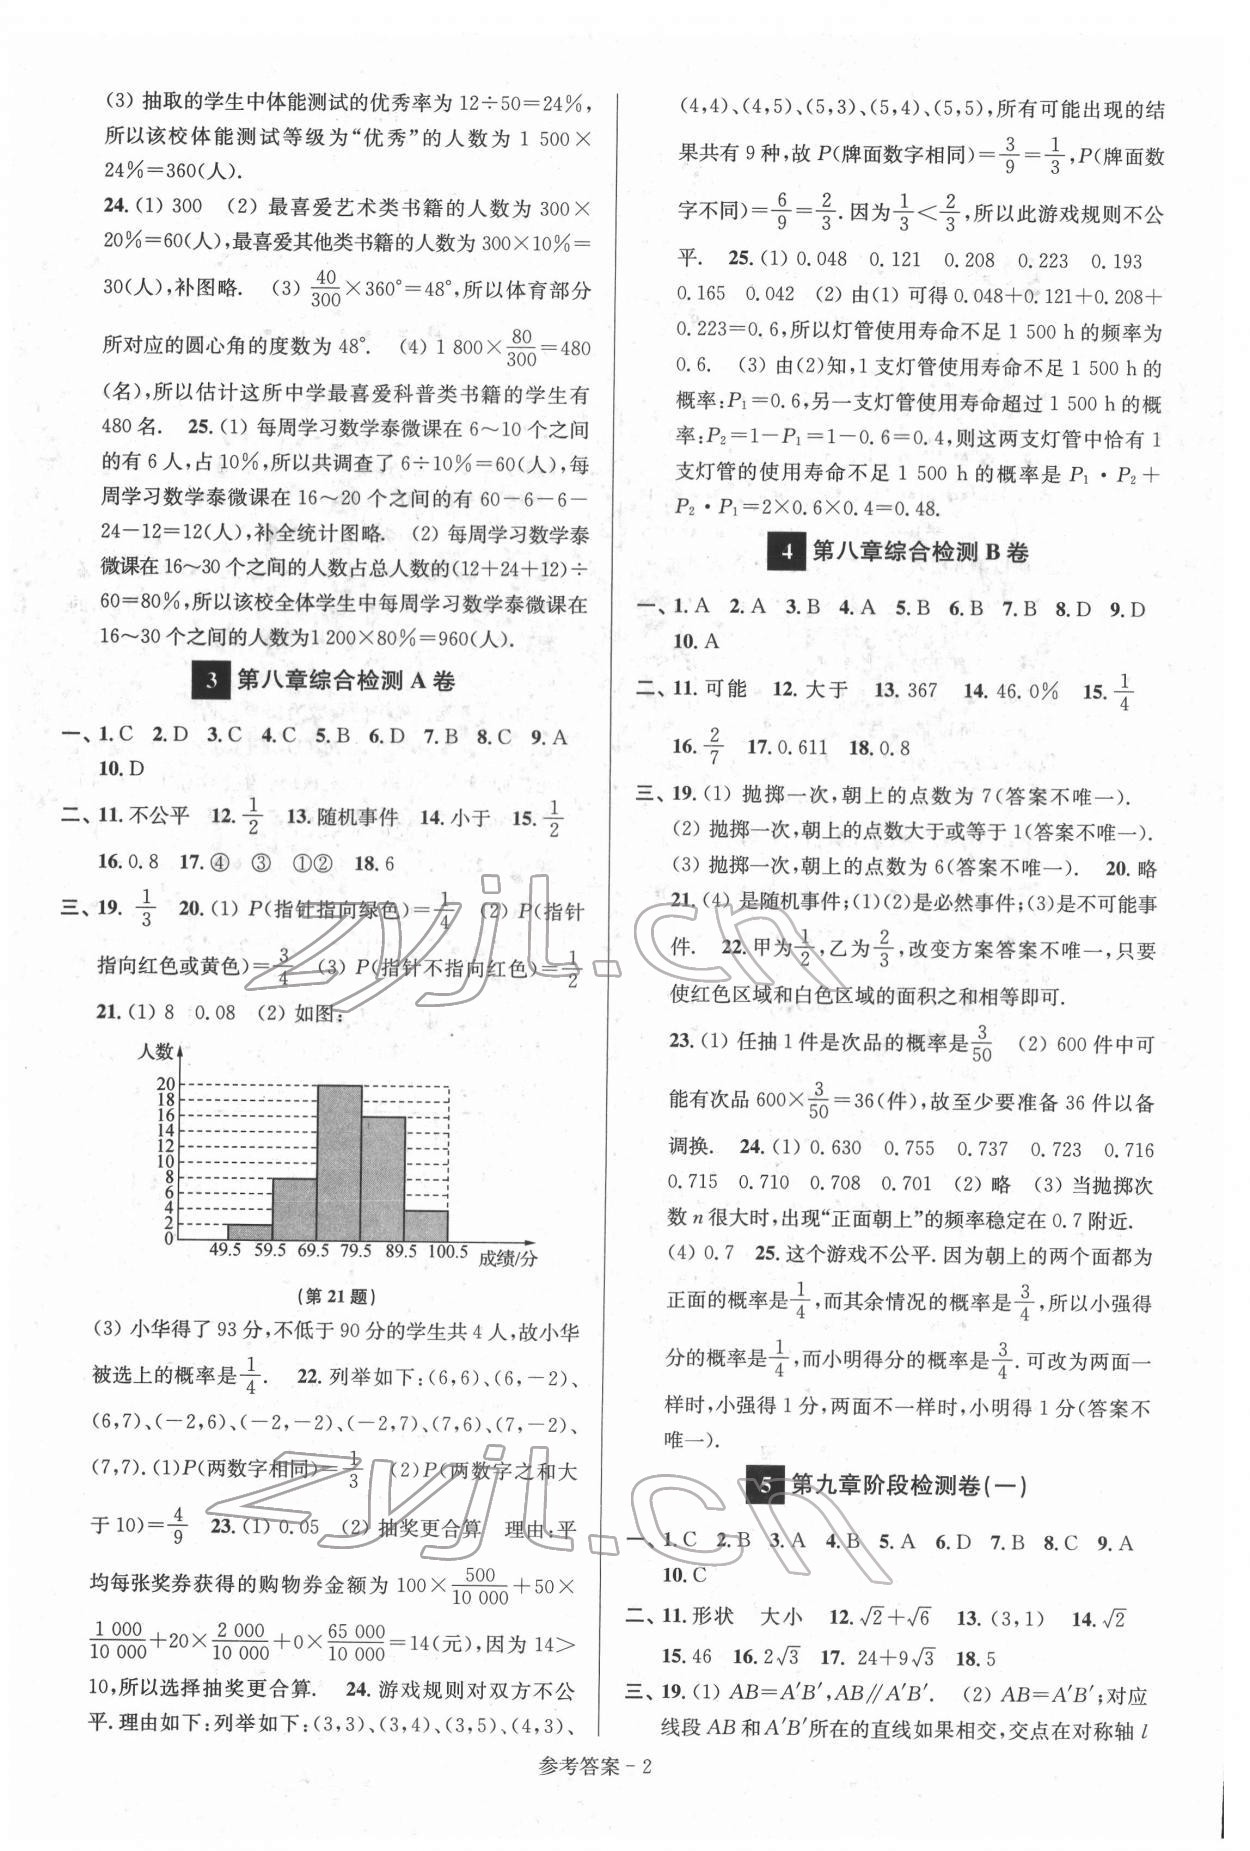 (3) 抽取的学生中体能测试的优秀率为 12÷50=24%,
所以该校体能测试等级为“优秀”的人数为 1 500×
24%=360(人).
24.(1) 300 (2) 最喜爱艺术类书籍的人数为 300×
20%=60(人),最喜爱其他类书籍的人数为 300×10%=
30(人),补图略. (3) 40/300×360°=48°,所以体育部分
所对应的圆心角的度数为 48°. (4) 1 800×80/300=480
(名),所以估计这所中学最喜爱科普类书籍的学生有
480 名. 25.(1) 每周学习数学泰微课在 6～10 个之间
的有 6 人,占 10%,所以共调查了 6÷10%=60(人),每
周学习数学泰微课在 16～20 个之间的有 60-6-6-
24-12=12(人),补全统计图略. (2) 每周学习数学泰
微课在 16～30 个之间的人数占总人数的(12+24+12)÷
60=80%,所以该校全体学生中每周学习数学泰微课在
16～30 个之间的人数为1 200×80%=960(人).
3 第八章综合检测 A 卷
一、1. C 2. D 3. C 4. C 5. B 6. D 7. B 8. C 9. A
10. D
二、11. 不公平 12. 1/2 13. 随机事件 14. 小于 15. 1/2
16. 0.8 17. ④ ③ ①② 18. 6
三、19. 1/3 20.(1) P(指针指向绿色)=1/4 (2) P(指针
指向红色或黄色)=3/4 (3) P(指针不指向红色)=1/2
21.(1) 8 0.08 (2) 如图:
人数
20
18
16
14
12
10
8
6
4
2
0
49.5 59.5 69.5 79.5 89.5 100.5 成绩/分
(第 21 题)
(3) 小华得了 93 分,不低于 90 分的学生共 4 人,故小华
被选上的概率是1/4. 22. 列举如下:(6,6)、(6,-2)、
(6,7)、(-2,6)、(-2,-2)、(-2,7)、(7,6)、(7,-2)、
(7,7).(1)P(两数字相同)=1/3 (2)P(两数字之和大
于 10)=4/9 23.(1) 0.05 (2) 抽奖更合算 理由:平
均每张奖券获得的购物券金额为 100×500/10 000+50×
1 000/10 000+20×2 000/10 000+0×65 000/10 000=14(元),因为 14>
10,所以选择抽奖更合算. 24. 游戏规则对双方不公
平.理由如下:列举如下:(3,3)、(3,4)、(3,5)、(4,3)、
(4,4)、(4,5)、(5,3)、(5,4)、(5,5),所有可能出现的结
果共有 9 种,故 P(牌面数字相同)=3/9=1/3,P(牌面数
字不同)=6/9=2/3.因为1/3<2/3,所以此游戏规则不公
平. 25.(1) 0.048 0.121 0.208 0.223 0.193
0.165 0.042 (2) 由(1) 可得 0.048+0.121+0.208+
0.223=0.6,所以灯管使用寿命不足 1 500 h 的频率为
0.6. (3) 由(2)知,1 支灯管使用寿命不足 1 500 h 的
概率:P₁=0.6,另一支灯管使用寿命超过 1 500 h 的概
率:P₂=1-P₁=1-0.6=0.4,则这两支灯管中恰有 1
支灯管的使用寿命不足 1 500 h 的概率是 P₁·P₂+
P₂·P₁=2×0.6×0.4=0.48.
4 第八章综合检测 B 卷
一、1. A 2. A 3. B 4. A 5. B 6. B 7. B 8. D 9. D
10. A
二、11. 可能 12. 大于 13. 367 14. 46.0% 15. 1/4
16. 2/7 17. 0.611 18. 0.8
三、19.(1) 抛掷一次,朝上的点数为 7(答案不唯一).
(2) 抛掷一次,朝上的点数大于或等于 1(答案不唯一).
(3) 抛掷一次,朝上的点数为 6(答案不唯一). 20. 略
21.(4) 是随机事件;(1)(2)是必然事件;(3)是不可能事
件. 22. 甲为1/2,乙为2/3,改变方案答案不唯一,只要
使红色区域和白色区域的面积之和相等即可.
23.(1) 任抽 1 件是次品的概率是3/50 (2) 600 件中可
能有次品 600×3/50=36(件),故至少要准备 36 件以备
调换. 24.(1) 0.630 0.755 0.737 0.723 0.716
0.715 0.710 0.708 0.701 (2) 略 (3) 当抛掷次
数 n 很大时,出现“正面朝上”的频率稳定在 0.7 附近.
(4) 0.7 25. 这个游戏不公平.因为朝上的两个面都为
正面的概率是1/4,而其余情况的概率是3/4,所以小强得
分的概率是1/4,而小明得分的概率是3/4.可改为两面一
样时,小强得 1 分,两面不一样时,小明得 1 分(答案不
唯一).
5 第九章阶段检测卷(一)
一、1. C 2. B 3. A 4. B 5. A 6. D 7. B 8. C 9. A
10. C
二、11. 形状 大小 12. √2+√6 13. (3,1) 14. √2
15. 46 16. 2√3 17. 24+9√3 18. 5
三、19.(1) AB=A′B′,AB∥A′B′. (2) AB=A′B′;对应
线段 AB 和 A′B′所在的直线如果相交,交点在对称轴 l
参考答案 - 2
zyjl.cn
zyjl.cn